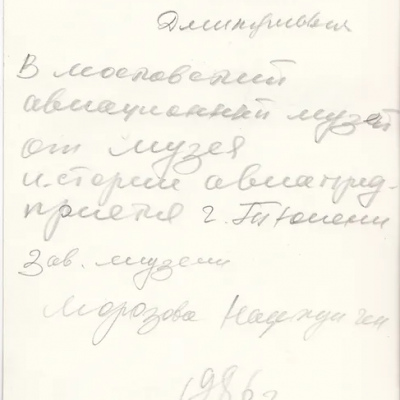 В московский
авиационный музей
от музея
истории авиапред-
приятия г. Тюмени
Зав. музеем
Морозова
1986 г